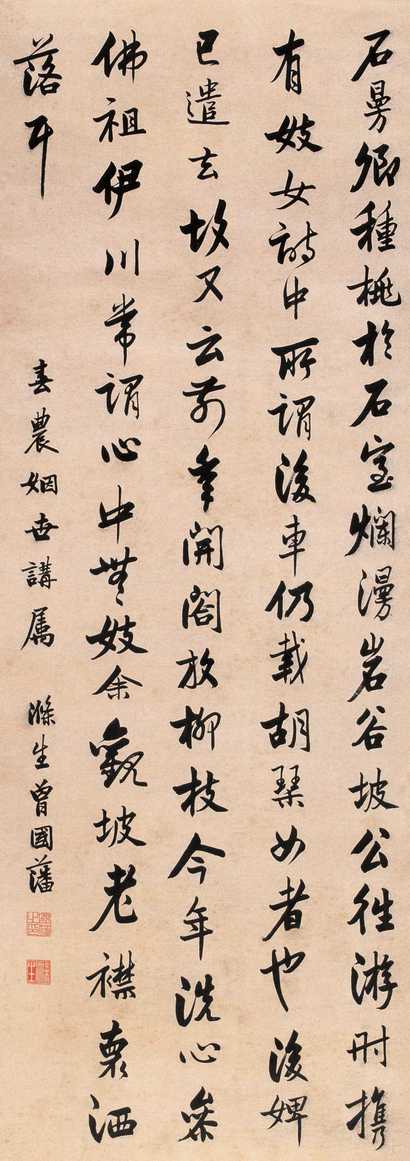 石曼卿種桃於石室爛漫岩谷坡公往游時攜
有妓女詩中所謂後車仍載胡琴女者也後婢
已遣去故又云前年開閣放柳枝今年洗心參
佛祖伊川常謂心中無妓余觀坡老襟裏洒
落耳
春農姻世講屬 滌生曾國藩